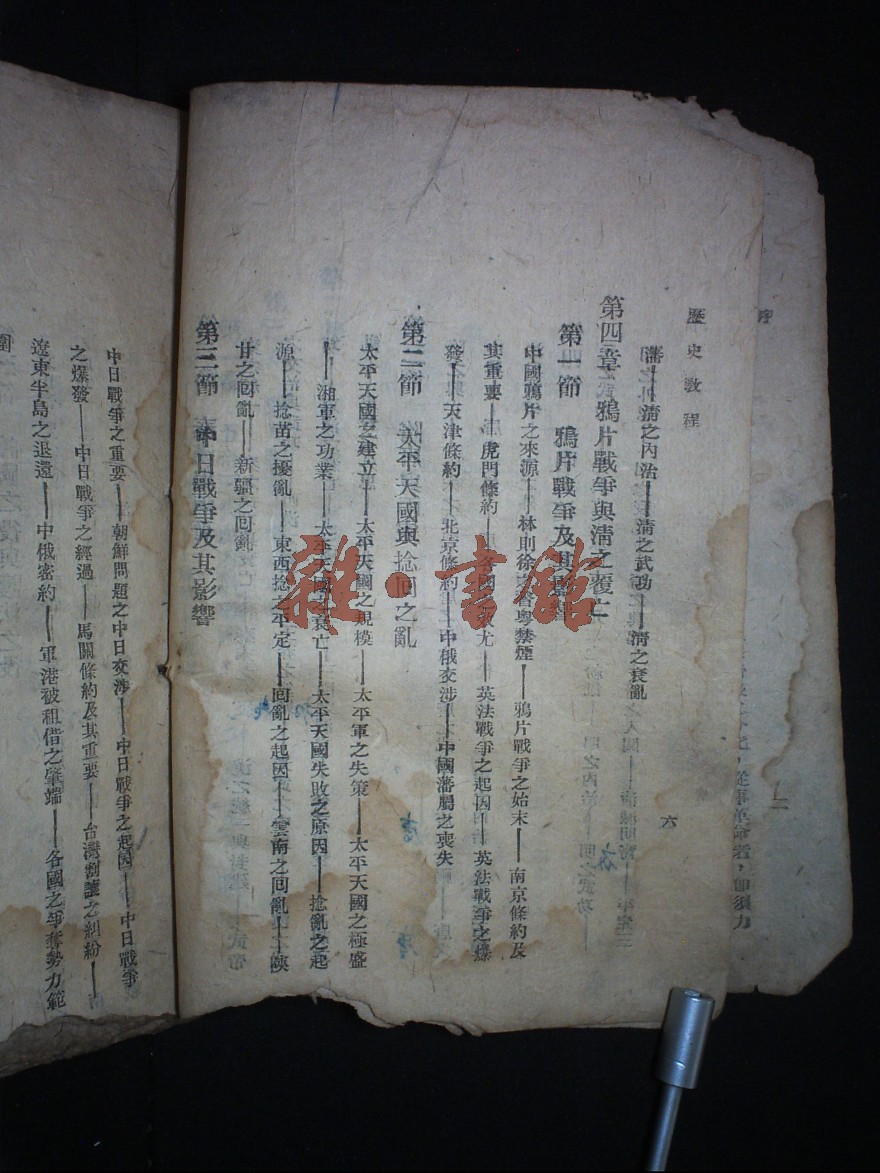 歷史教程
六
藩——清之內治——清之武功——清之衰亂
第四章 鴉片戰爭與清之覆亡
第一節 鴉片戰爭及其影響
中國鴉片之來源——林則徐之督粵禁煙——鴉片戰爭之始末——南京條約及
其重要——虎門條約——各國之效尤——英法戰爭之起因——英法戰爭之爆
發——天津條約——北京條約——中俄交涉——中國藩屬之喪失
第二節 太平天國與捻回之亂
太平天國之建立——太平天國之規模——太平軍之失策——太平天國之極盛
——湘軍之功業——太平天國之衰亡——太平天國失敗之原因——捻亂之起
源——捻苗之擾亂——東西捻之平定——回亂之起因——雲南之回亂——陝
甘之回亂——新疆之回亂
第三節 中日戰爭及其影響
中日戰爭之重要——朝鮮問題之中日交涉——中日戰爭之起因——中日戰爭
之爆發——中日戰爭之經過——馬關條約及其重要——台灣割讓之糾紛——
遼東半島之退還——中俄密約——軍港被租借之肇端——各國之爭奪勢力範
圍
雜·書館